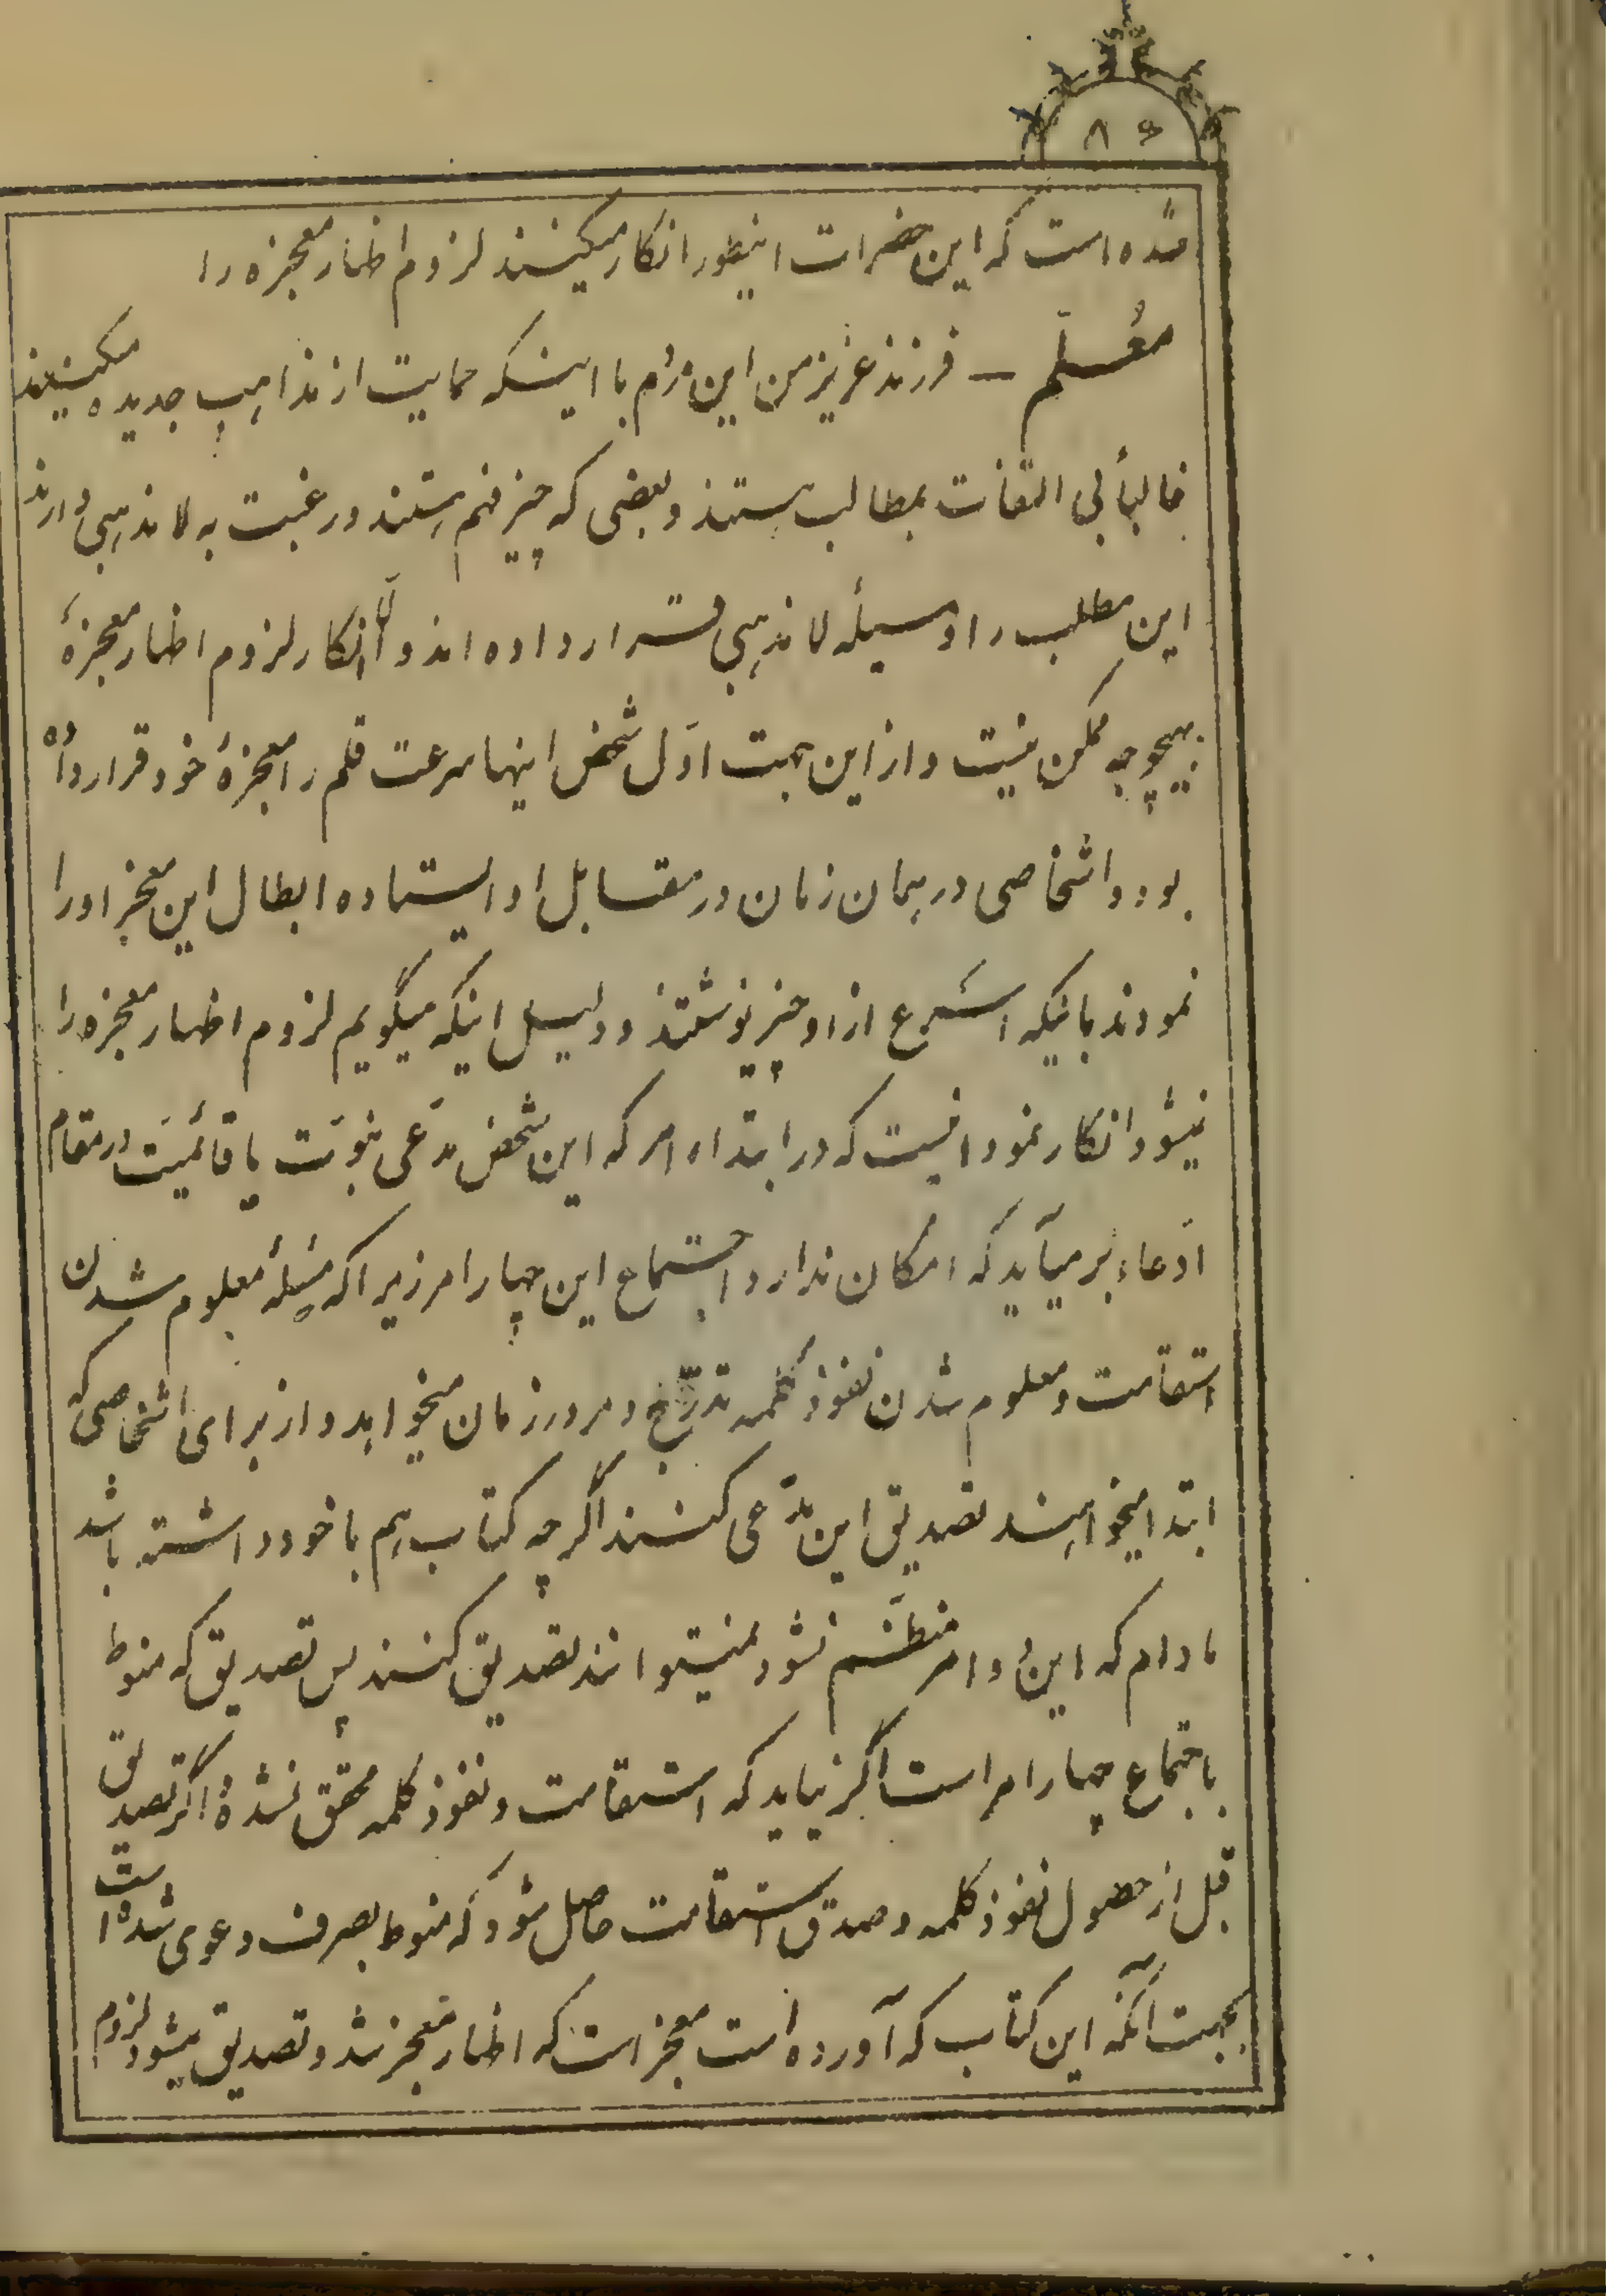 ۸۵
شده است که این حضرات اینطور انکار میکنند لزوم اظهار معجزه را
معُلّم — فرزند عزیز من این مردُم با اینکه حمایت از مذاهب جدیده میکنند
غالباً بی التفات بمطالب هستند و بعضی که چیز فهم هستند و رغبت به لامذهبی دارند
این مطلب را وسیلهٔ لامذهبی قرار داده اند و الّا انکار لزوم اظهار معجزهٔ
بهیچوجه ممکن نیست و از این جهت اوّل شخص اینها سرعت قلم را معجزهٔ خود قرار داده
بود و اشخاصی در همان زمان در مقابل او ایستاده ابطال این معجز او را
نمودند باینکه اسرع از او چیز نوشتند و دلیل اینکه میگویم لزوم اظهار معجزه را
نمیشود انکار نمود اینست که در ابتداء امر که این شخص مدّعی نبوّت یا قائمیّت در مقام
ادّعاء بر میآید که امکان ندارد اجتماع این چهار امر زیرا که مسئلهٔ معلوم شدن
استقامت و معلوم شدن نفوذ کلمه تدرّج و مرور زمان میخواهد و از برای اشخاصی که
ابتدا میخواهند تصدیق این مدّعی کنند اگر چه کتاب هم با خود داشته باشد
مادام که این دو امر منظّم نشود نمیتوانند تصدیق کنند پس تصدیق که منوط
باجتماع چهار امر است اگر نیاید که استقامت و نفوذ کلمه محقق نشده و اگر تصدیق
قبل از حصول نفوذ کلمه و صدق استقامت حاصل شود که منوط بصرف دعوی شده است
بجهت آنکه این کتاب که آورده است معجز است که اظهار معجز شد و تصدیق میشود لزوم